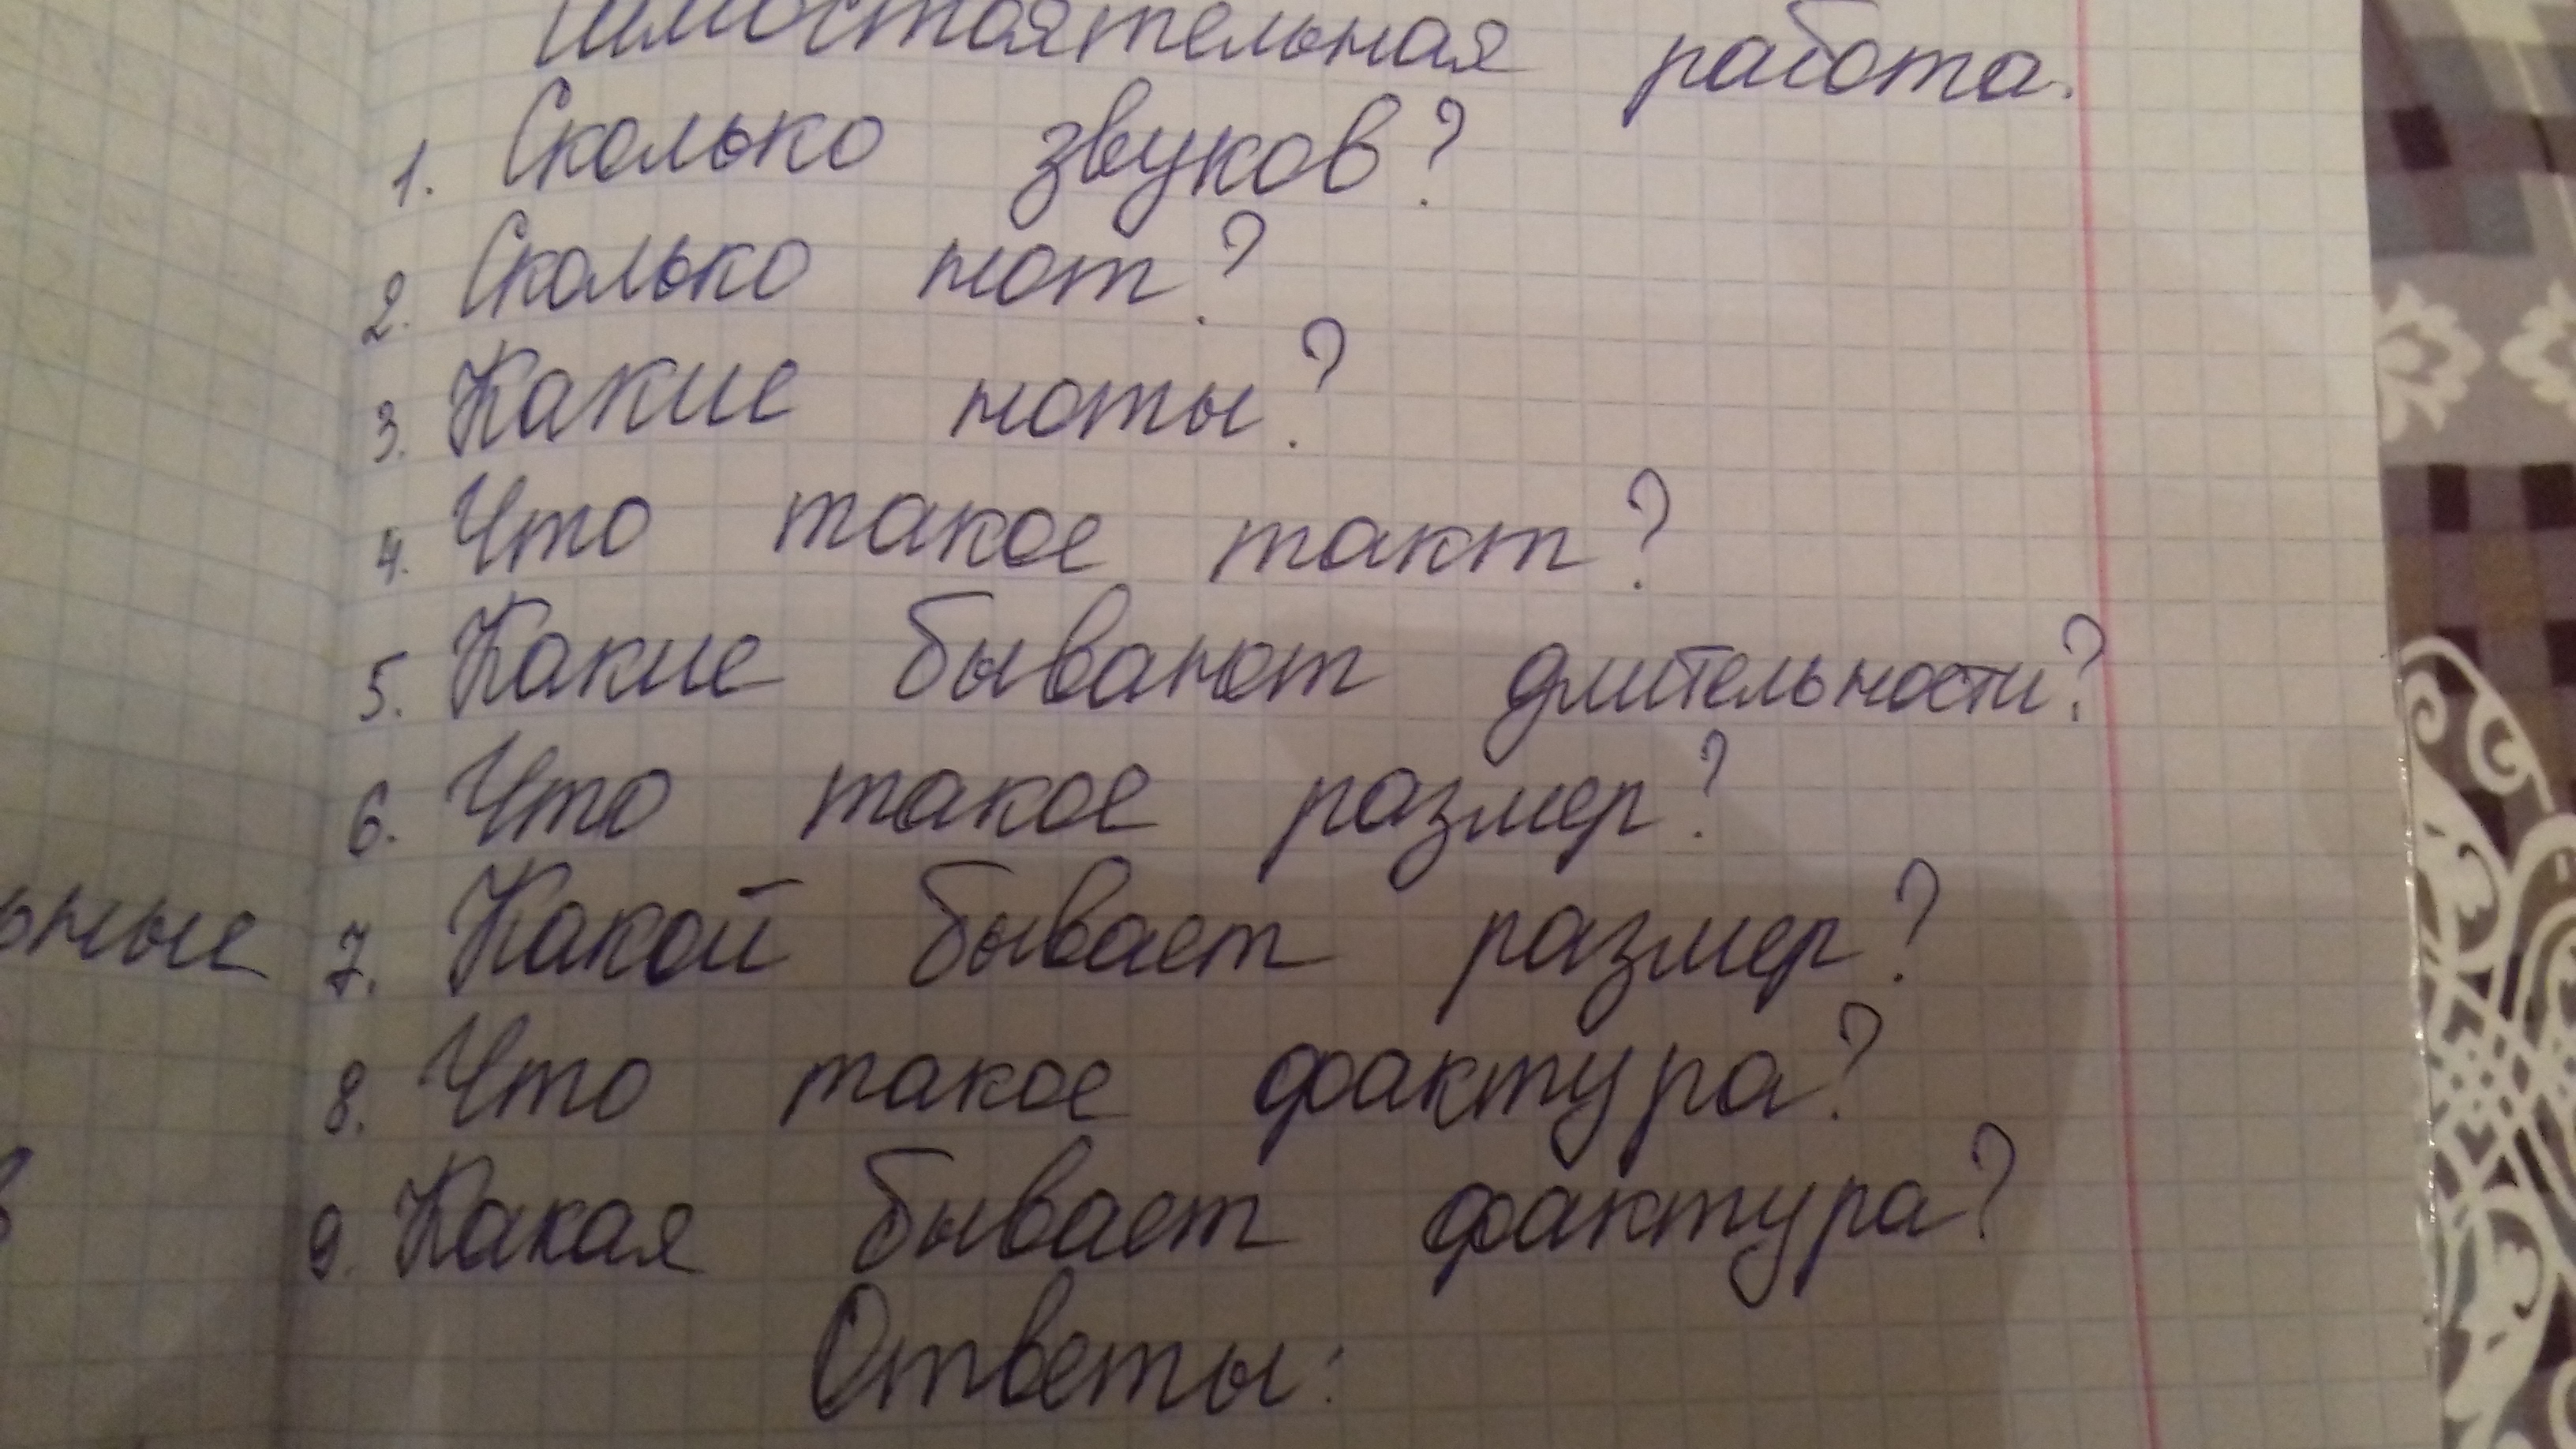 Самостоятельная работа.
1. Сколько звуков?
2. Сколько нот?
3. Какие ноты?
4. Что такое такт?
5. Какие бывают длительности?
6. Что такое размер?
ьные
7. Какой бывает размер?
8. Что такое фактура?
9. Какая бывает фактура?
Ответы: